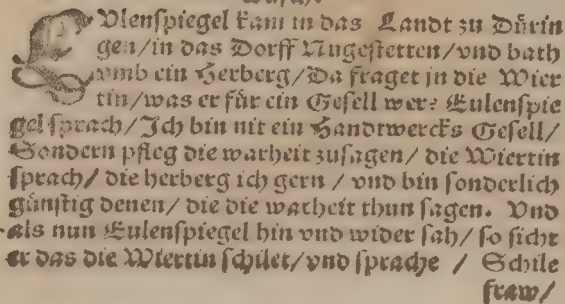 EVlenspiegel kam in das Landt zu Dürin
gen/in das Dorff Nugestetten/vnd bath
vmb ein Herberg/Da fraget jn die Wier
tin/was er für ein Gesell wer: Eulenspie
gel sprach/Ich bin nit ein Handtwercks Gesell/
Sondern pfleg die warheit zusagen/ die Wiertin
sprach/ die herberg ich gern / vnd bin sonderlich
günstig denen/ die die warheit thun sagen. Vnd
als nun Eulenspiegel hin vnd wider sah/ so sicht
er das die Wiertin schilet/vnd sprache / Schile
fraw/